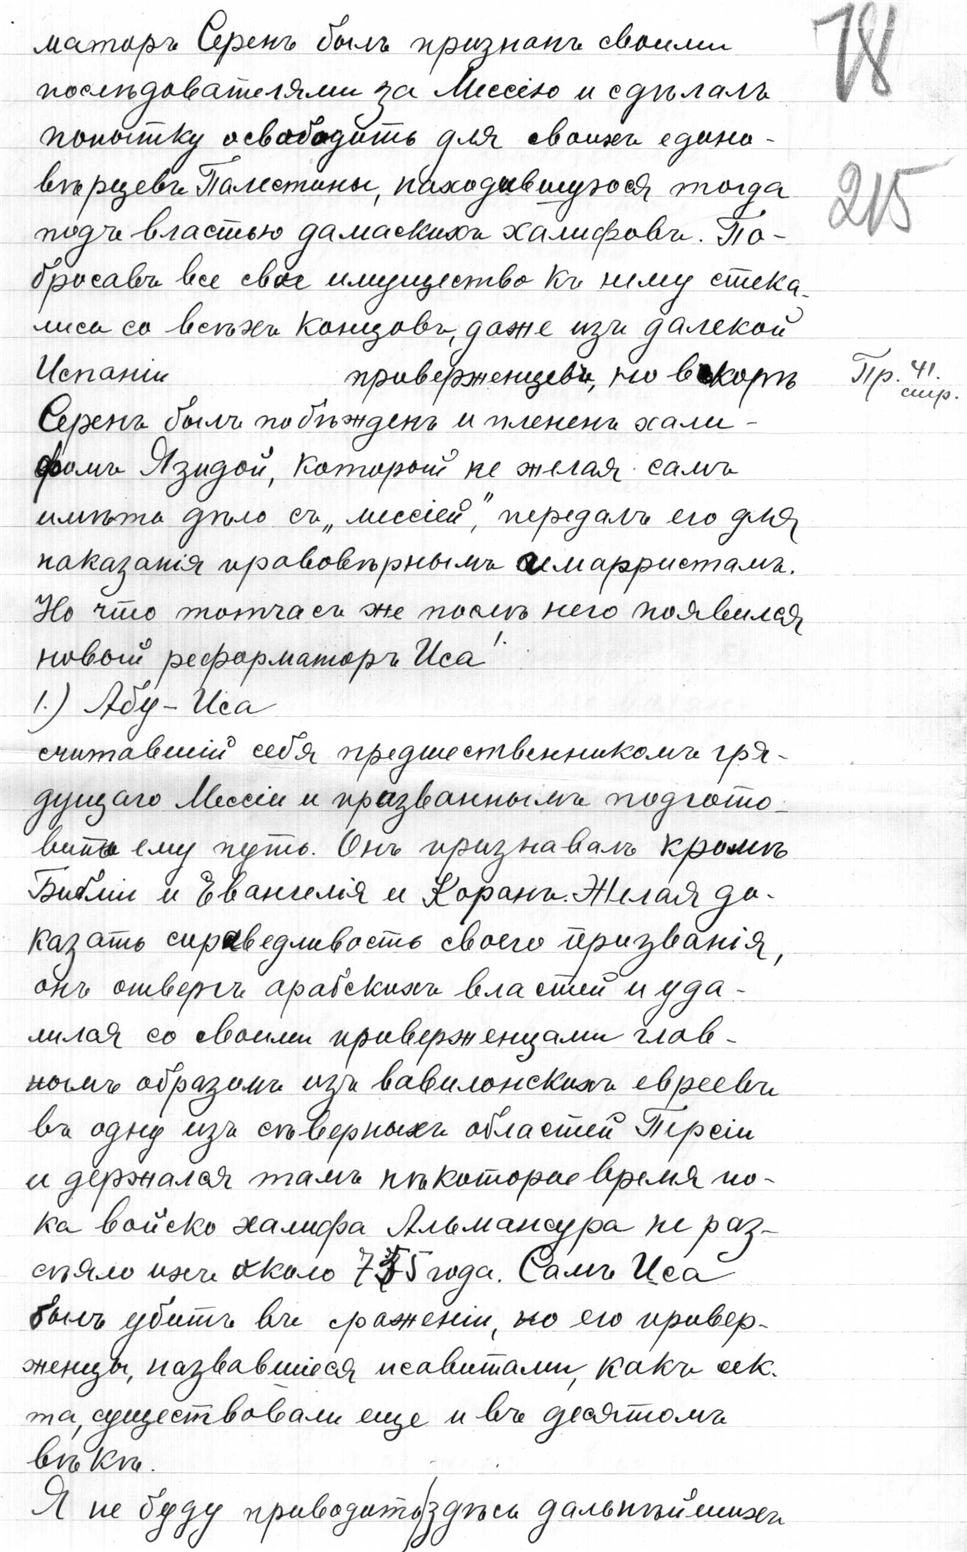 78
маторъ Серенъ былъ признанъ своими
послѣдователями за Мессію и сдѣлалъ
попытку освободить для своихъ едино-
вѣрцевъ Палестины, находившуюся тогда
215
подъ властью дамаскихъ халифовъ. По-
бросавъ все свое имущество къ нему стека-
лись со всѣхъ концовъ, даже изъ далекой
Испаніи приверженцевъ, но вскорѣ
Пр. 41.
стр.
Серенъ былъ побѣжденъ и плененъ хали-
фомъ Язидой, который не желая самъ
имѣть дѣло съ „мессіей", передалъ его для
наказанія правовѣрнымъ амарристамъ.
Но что тотчасъ же послѣ него появился
новый реформаторъ Иса!
1.) Абу-Иса
считавшій себя предшественникомъ гря-
дущаго Мессіи и призваннымъ подгото-
вить ему путь. Онъ признавалъ кромѣ
Библіи и Евангелія и Коранъ. Желая до-
казать справедливость своего призванія,
онъ отвергъ арабскихъ властей и уда-
лился со своими приверженцами глав-
нымъ образомъ изъ вавилонскихъ евреевъ
въ одну изъ сѣверныхъ областей Персіи
и держался тамъ нѣкоторое время по-
ка войско халифа Альмансура не раз-
сѣяло ихъ около 755 года. Самъ Иса
былъ убитъ въ сраженіи, но его привер-
женцы, назвавшіеся исавитами, какъ сек-
та, существовали еще и въ десятомъ
вѣкѣ.
Я не буду приводить здѣсь дальнѣйшихъ